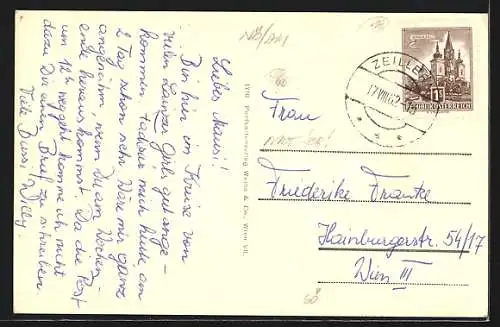 Liebes Mausi!
Bin hier im Kreise von
vielen Lainzer Girls gut ange-
kommen, tadssur mich heute am
2 Tag schon sehr. Wäre mir ganz
angenehm, wenn Du am Wochen-
ende heraus kommst. Da die Post
um 12h weggeht komme ich nicht
dazu Dir einen Brief zu schreiben.
Viele Bussi Willy
Frau
Friederike Franke
Hainburgerstr. 54/17
Wien III
1716 Postkartenverlag Weiss & Co., Wien VII.
ZEILLE
17.VIII.62
1S
REPUBLIK ÖSTERREICH